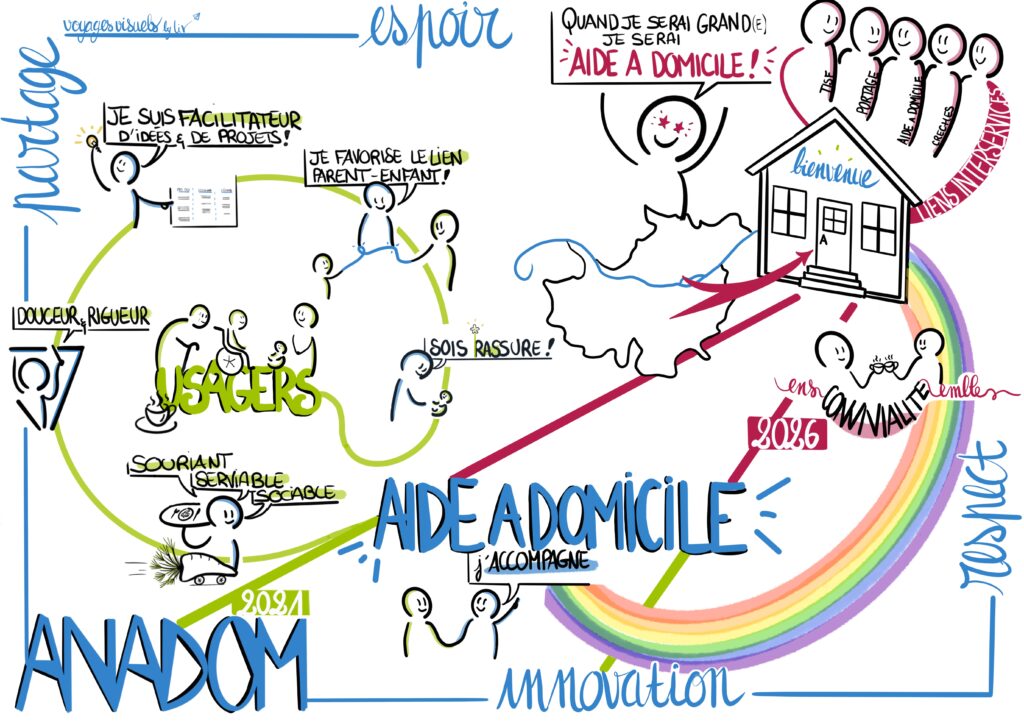 voyages visuels by liv
espoir
partage
QUAND JE SERAI GRAND(E)
JE SERAI
AIDE A DOMICILE !
TISF
PORTAGE
AIDE A DOMICILE
CRECHES
LIENS INTERSERVICES
bienvenue
A
JE SUIS FACILITATEUR
D'IDÉES & DE PROJETS !
JE FAVORISE LE LIEN
PARENT-ENFANT !
DOUCEUR & RIGUEUR
SOIS RASSURE !
USAGERS
ensemble
CONVIVIALITE
2026
SOURIANT
SERVIABLE
SOCIABLE
AIDE A DOMICILE
j'ACCOMPAGNE
2021
ANADOM
respect
innovation